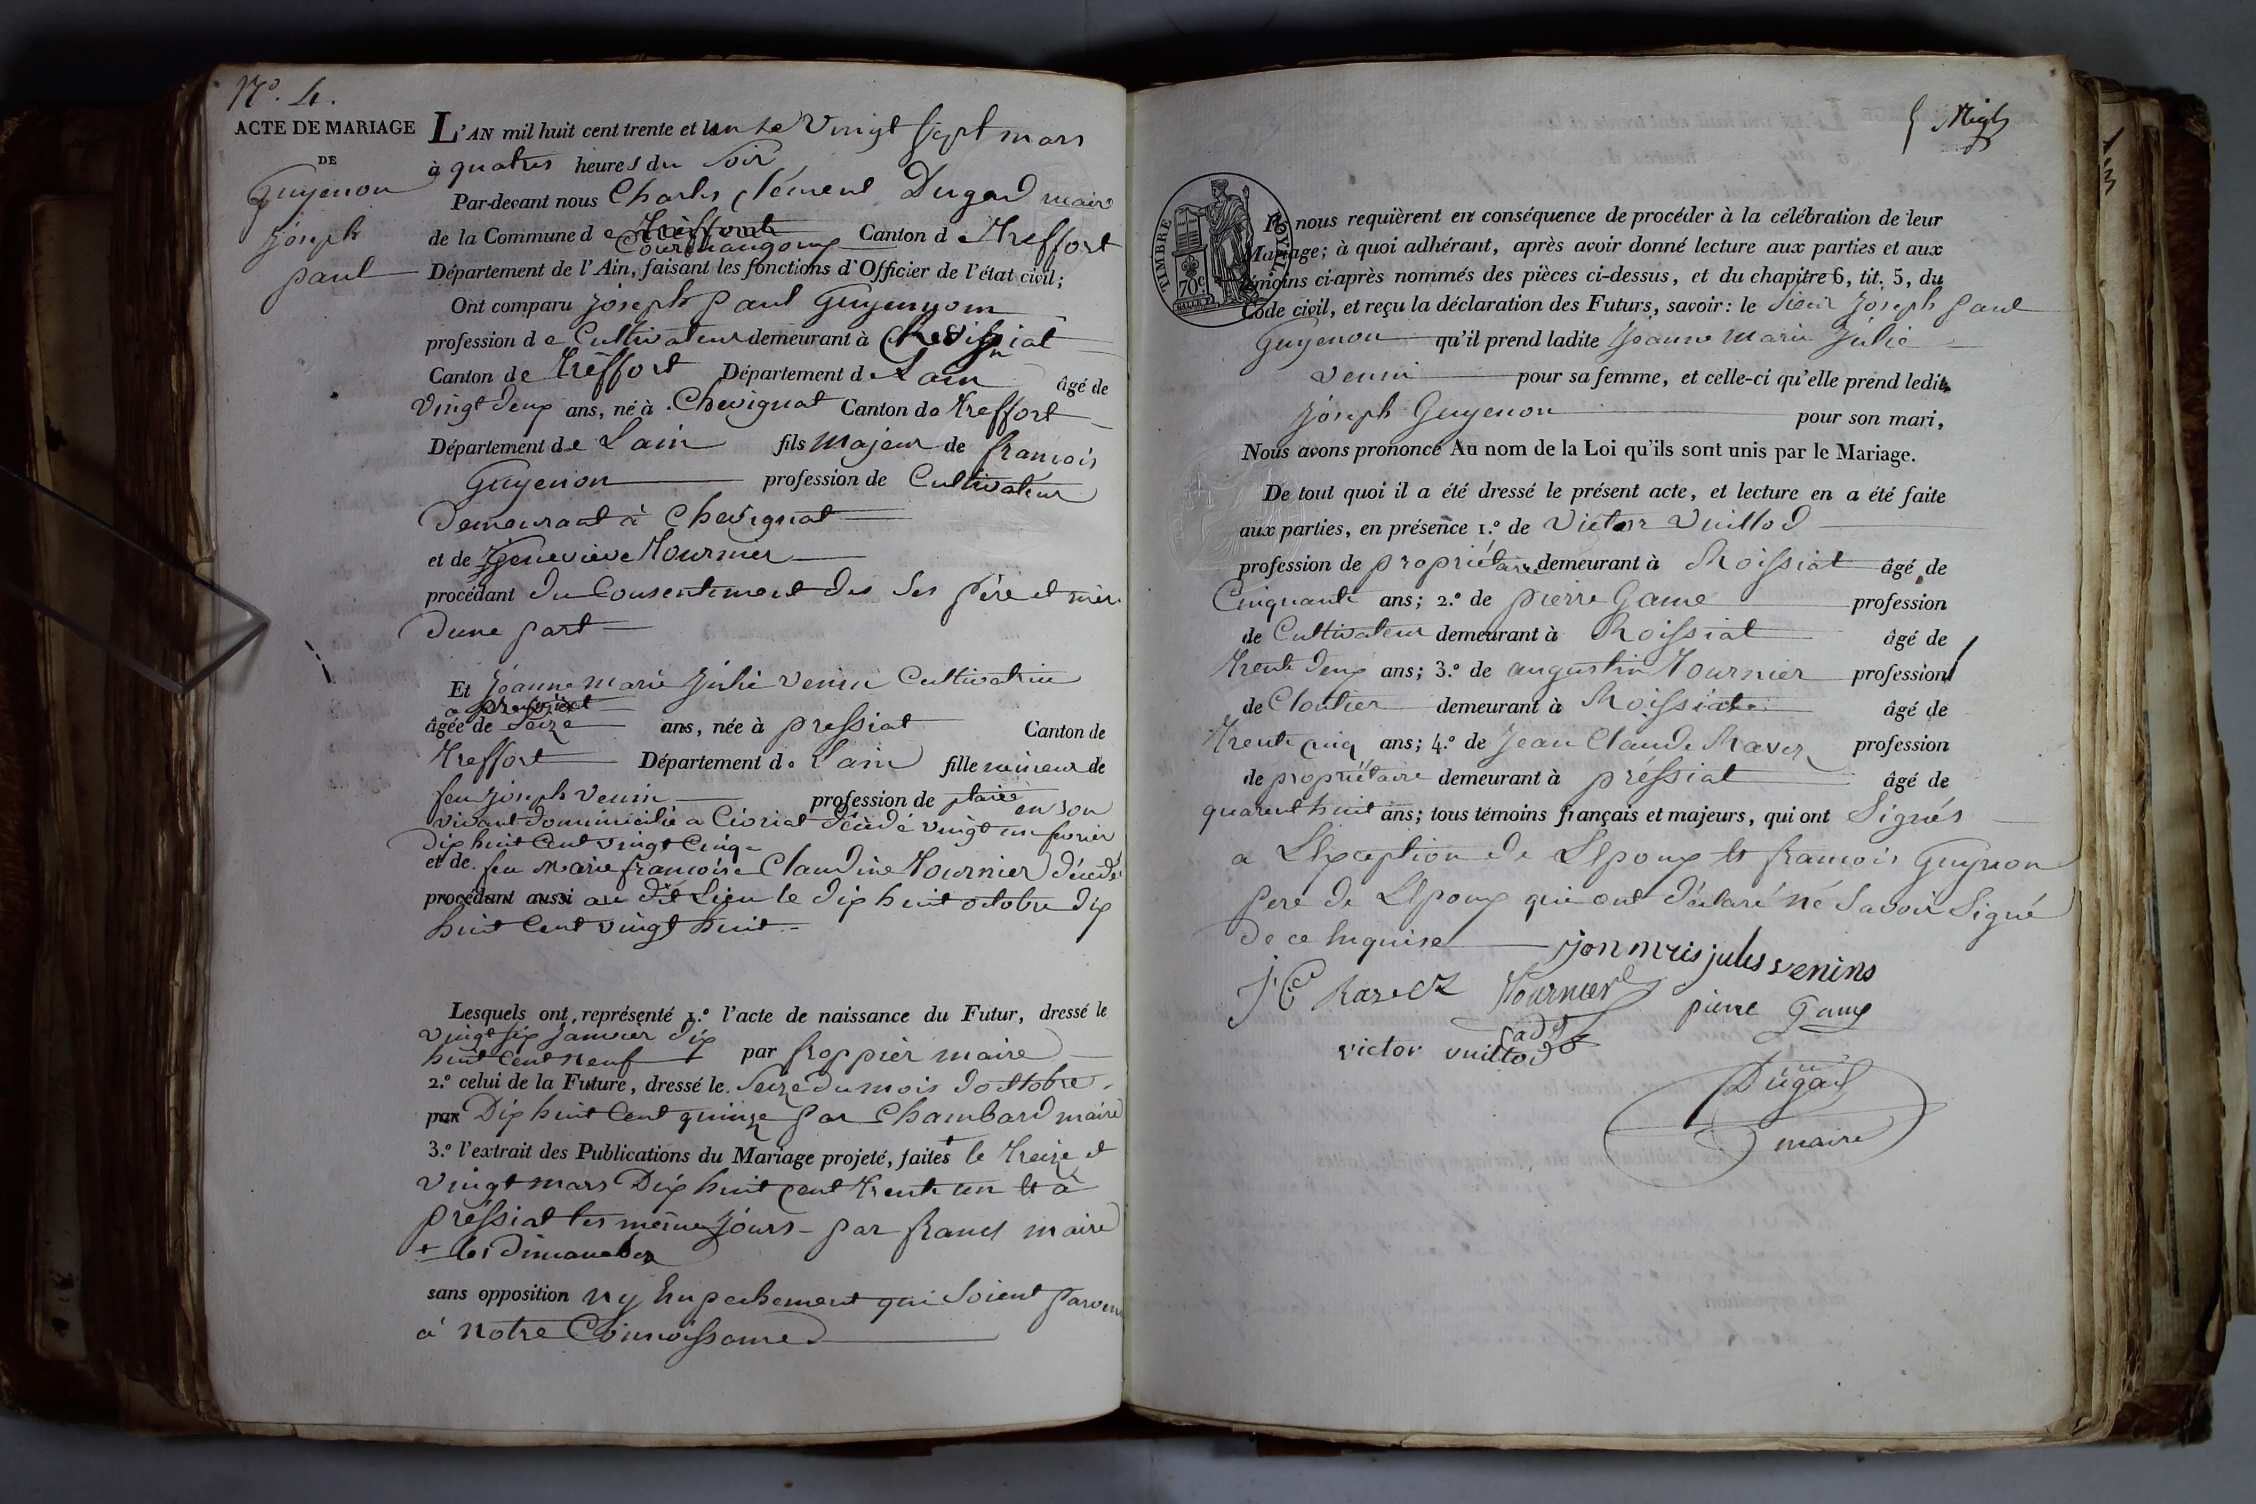 N.º 4.
ACTE DE MARIAGE
DE
Guyenon
Joseph
paul
L'AN mil huit cent trente et un le vingt sept mars
à quatres heures du soir
Par-devant nous Charles Clément Dugad maire
de la Commune de Treffort Courmangoux Canton de Treffort
Département de l'Ain, faisant les fonctions d'Officier de l'état civil;
Ont comparu Joseph paul Guyennom
profession de Cultivateur demeurant à
Canton de Treffort Département de Lain âgé de
vingt deux ans, né à Chevignat Canton de Treffort
Département de Lain fils majeur de francois
Guyenon profession de Cultivateur
demeurant à Chevignat
et de Geneviève Tournier
procédant du Consentement des ses père et mère
dune part
Et Jeanne marie Julie venin Cultivatrice
a pressiat
âgée de seize ans, née à pressiat Canton de
Treffort Département de Lain fille mineur de
feu Joseph venin profession de en son
vivant domicilié a Civriat décédé vingt un fevrier
Dix huit Cent vingt Cinq
et de feu Marie francoise Claudine Tournier décédé
procédant aussi au dit Lieu le dix huit octobre dix
huit Cent vingt huit
Lesquels ont représenté 1.º l'acte de naissance du Futur, dressé le
vingt six Janvier dix
huit Cent neuf par froppier maire
2.º celui de la Future, dressé le seize du mois doctobre
par Dix huit Cent quinze par Chambard maire
3.º l'extrait des Publications du Mariage projeté, faites + le treize et
vingt mars Dix huit cent trente un et à
préssiat les même jours par maire
+ les dimanches
sans opposition ny Enpechement qui soient parvenu
à notre Connoissance
TIMBRE ROYAL
70c
Et nous requièrent en conséquence de procéder à la célébration de leur
Mariage; à quoi adhérant, après avoir donné lecture aux parties et aux
témoins ci-après nommés des pièces ci-dessus, et du chapitre 6, tit. 5, du
Code civil, et reçu la déclaration des Futurs, savoir: le sieur Joseph paul
Guyenon qu'il prend ladite Jeanne marie Julie
venin pour sa femme, et celle-ci qu'elle prend ledit
Joseph Guyenon pour son mari,
Nous avons prononcé Au nom de la Loi qu'ils sont unis par le Mariage.
De tout quoi il a été dressé le présent acte, et lecture en a été faite
aux parties, en présence 1.º de Victor Vuillod
profession de propriétaire demeurant à Roissiat âgé de
Cinquante ans; 2.º de pierre Game profession
de Cultivateur demeurant à Roissiat âgé de
trente deux ans; 3.º de augustin Tournier profession
de Cloutier demeurant à Roissiat âgé de
trente cinq ans; 4.º de Jean Claude Ravez profession
de propriétaire demeurant à préssiat âgé de
quarent huit ans; tous témoins français et majeurs, qui ont Signés
a LException de LEpoux et francois Guynon
pere de LEpoux qui ont déclaré né Savoir Signé
de ce Enquise
jon mris jules venins
J C Ravez
Tournier
cadet
pierre Game
victor vuillod
Dugad
maire